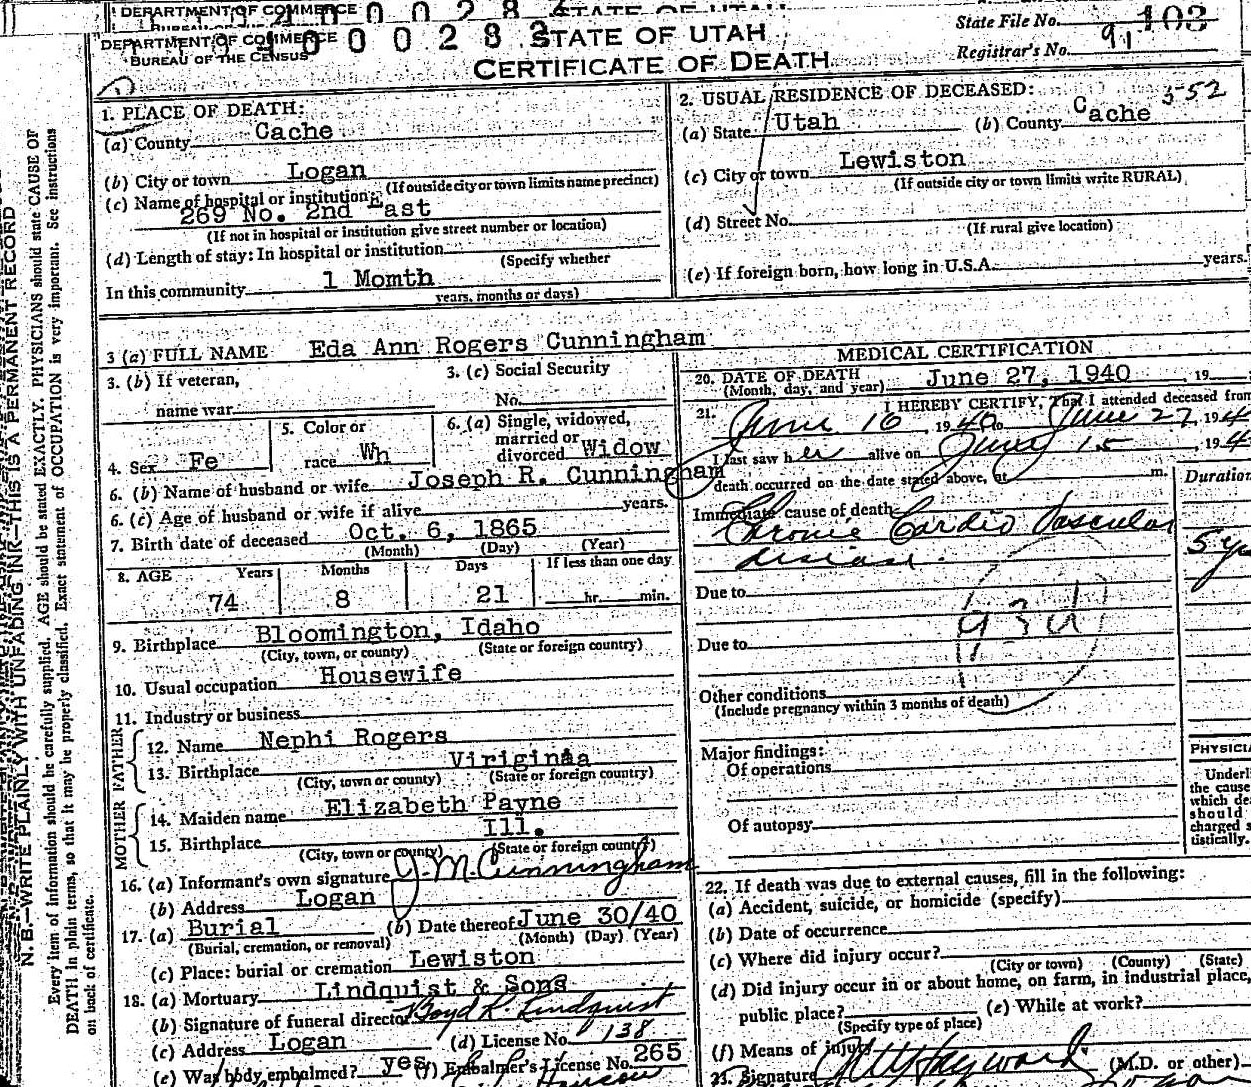 DEPARTMENT OF COMMERCE
STATE OF UTAH
DEPARTMENT OF COMMERCE
BUREAU OF THE CENSUS
STATE OF UTAH
CERTIFICATE OF DEATH
State File No. 103
Registrar's No. 91
1. PLACE OF DEATH:
(a) County Cache
(b) City or town Logan
(If outside city or town limits name precinct)
(c) Name of hospital or institution:
269 No. 2nd East
(If not in hospital or institution give street number or location)
(d) Length of stay: In hospital or institution
(Specify whether
In this community 1 Momth
years, months or days)
2. USUAL RESIDENCE OF DECEASED:
352
(a) State Utah (b) County Cache
(c) City or town Lewiston
(If outside city or town limits write RURAL)
(d) Street No.
(If rural give location)
(e) If foreign born, how long in U.S.A. years.
3 (a) FULL NAME Eda Ann Rogers Cunningham
3. (b) If veteran,
name war
3. (c) Social Security
No.
4. Sex Fe
5. Color or
race Wh
6. (a) Single, widowed,
married or
divorced Widow
6. (b) Name of husband or wife Joseph R. Cunningham
6. (c) Age of husband or wife if alive years.
7. Birth date of deceased Oct. 6, 1865
(Month) (Day) (Year)
8. AGE Years Months Days If less than one day
74 8 21 hr. min.
9. Birthplace Bloomington, Idaho
(City, town, or county) (State or foreign country)
10. Usual occupation Housewife
11. Industry or business
FATHER
12. Name Nephi Rogers
13. Birthplace Viriginia
(City, town or county) (State or foreign country)
MOTHER
14. Maiden name Elizabeth Payne
15. Birthplace Ill.
(City, town or county) (State or foreign country)
16. (a) Informant's own signature J. M. Cunningham
(b) Address Logan
17. (a) Burial (b) Date thereof June 30/40
(Burial, cremation, or removal) (Month) (Day) (Year)
(c) Place: burial or cremation Lewiston
18. (a) Mortuary Lindquist & Sons
(b) Signature of funeral director Boyd R. Lindquist
(c) Address Logan (d) License No. 138
(e) Was body embalmed? yes (f) Embalmer's License No. 265
MEDICAL CERTIFICATION
20. DATE OF DEATH
(Month, day, and year) June 27, 1940, 19
21. I HEREBY CERTIFY, That I attended deceased from
June 16, 1940 to June 27, 194
I last saw her alive on June 15, 194
death occurred on the date stated above, at m.
Immediate cause of death
Duration
Chronic Cardio Vascular
disease.
5 y
Due to
93d
Due to
Other conditions
(Include pregnancy within 3 months of death)
Major findings:
Of operations
Of autopsy
PHYSICIA
Underl
the cause
which de
should
charged s
tistically.
22. If death was due to external causes, fill in the following:
(a) Accident, suicide, or homicide (specify)
(b) Date of occurrence
(c) Where did injury occur?
(City or town) (County) (State)
(d) Did injury occur in or about home, on farm, in industrial place,
public place? (e) While at work?
(Specify type of place)
(f) Means of injury
23. Signature Hayward (M.D. or other)
N. B.—WRITE PLAINLY WITH UNFADING INK—THIS IS A PERMANENT RECORD
Every item of information should be carefully supplied. AGE should be stated EXACTLY. PHYSICIANS should state CAUSE OF
DEATH in plain terms, so that it may be properly classified. Exact statement of OCCUPATION is very important. See instructions
on back of certificate.